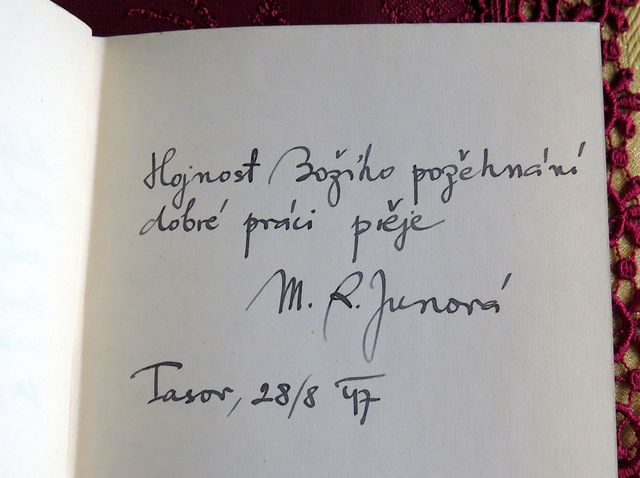 Hojnost Božího požehnání
dobré práci přeje
M. R. Junová
Tasov, 28/8 47